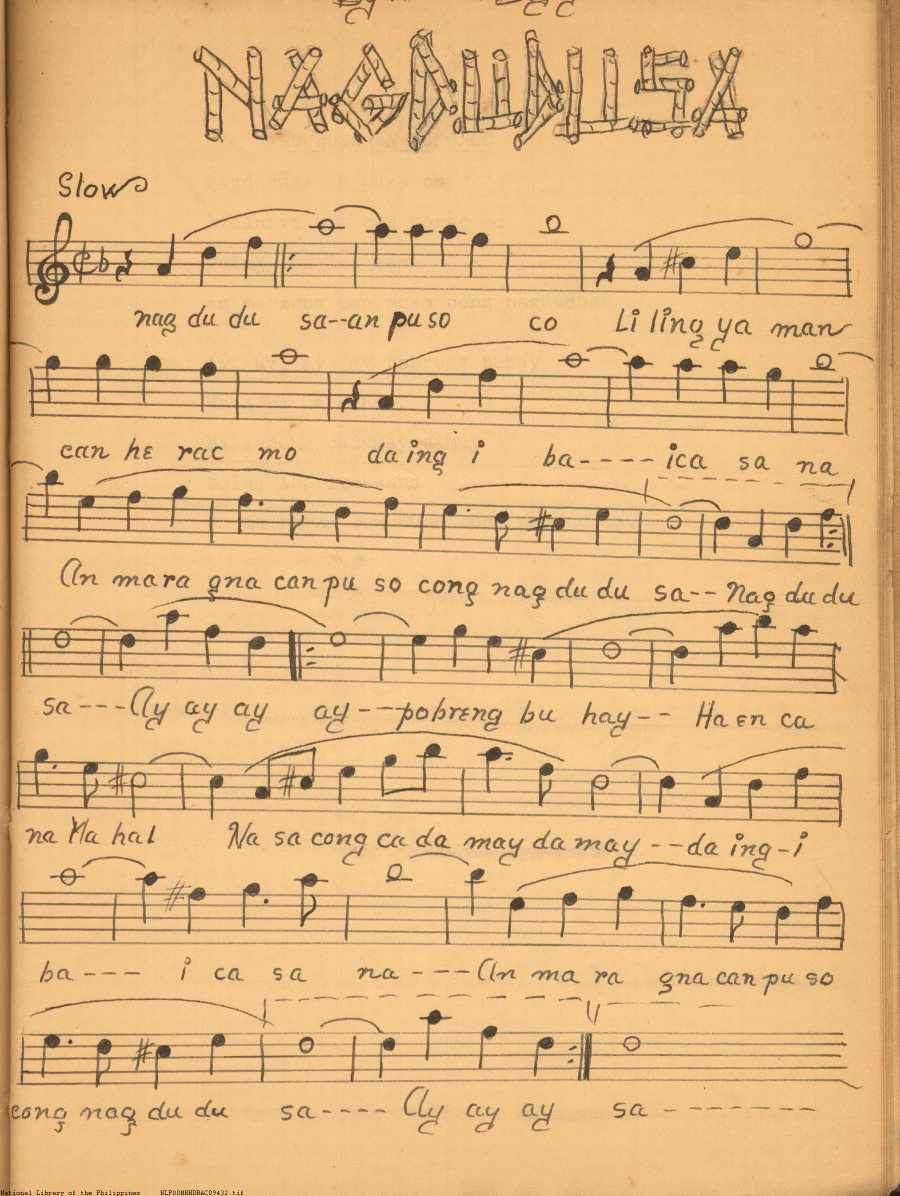 NAGDUDUSA
Slow
nag du du sa--an puso co Li ling ya man
can he rac mo da ing i ba----ica sa na
An mara gna can pu so cong nag du du sa-- Nag du du
sa---Ay ay ay ay---pobreng bu hay-- Ha en ca
na Ma hal Na sa cong ca da may da may --da ing-i
ba--- i ca sa na ---An ma ra gna can pu so
cong nag du du sa---- Ay ay ay sa --------
National Library of the Philippines NLPDOMNHDBAC09432.tif